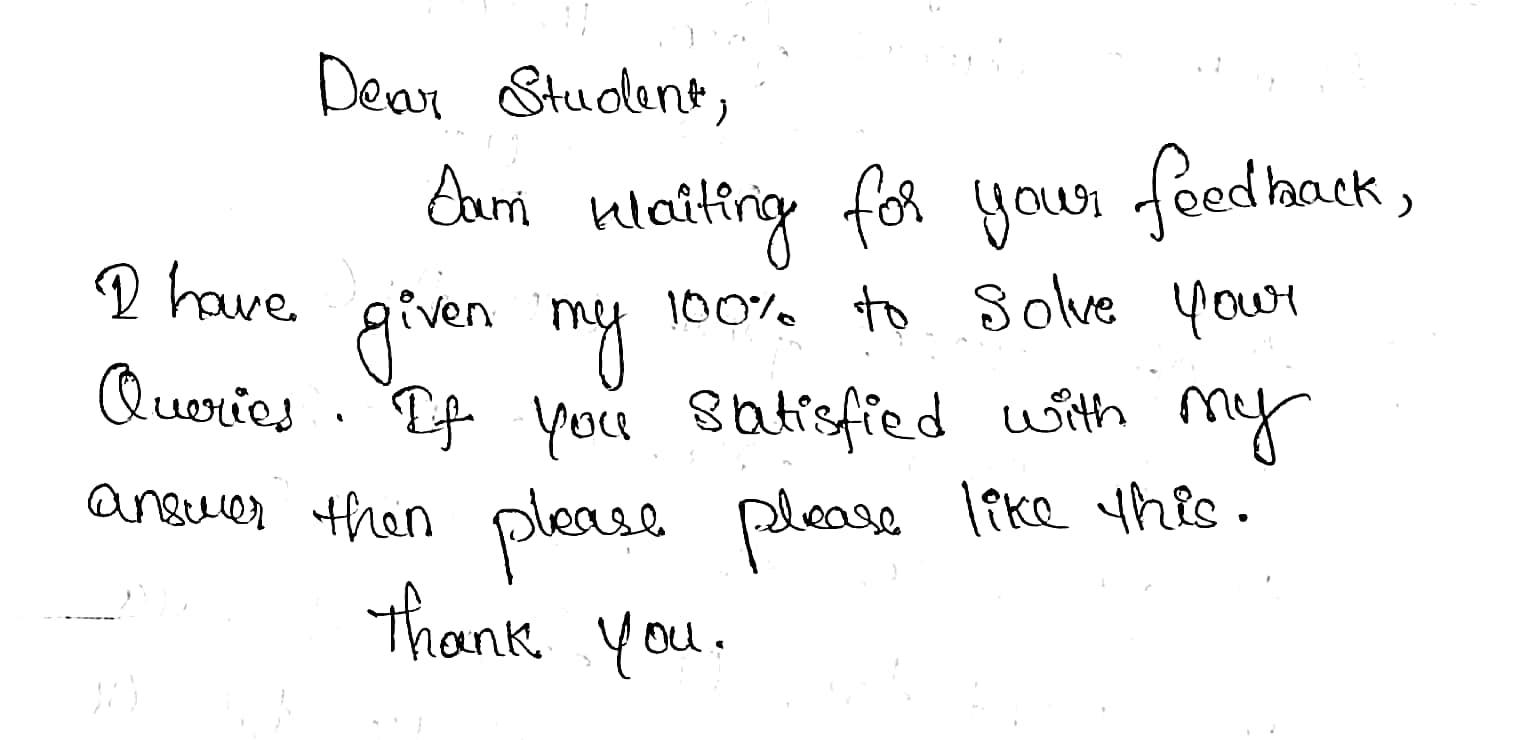 Dear Student,
I am waiting for your feedback,
I have given my 100% to solve your
Queries. If you Satisfied with my
answer then please please like this.
Thank you.